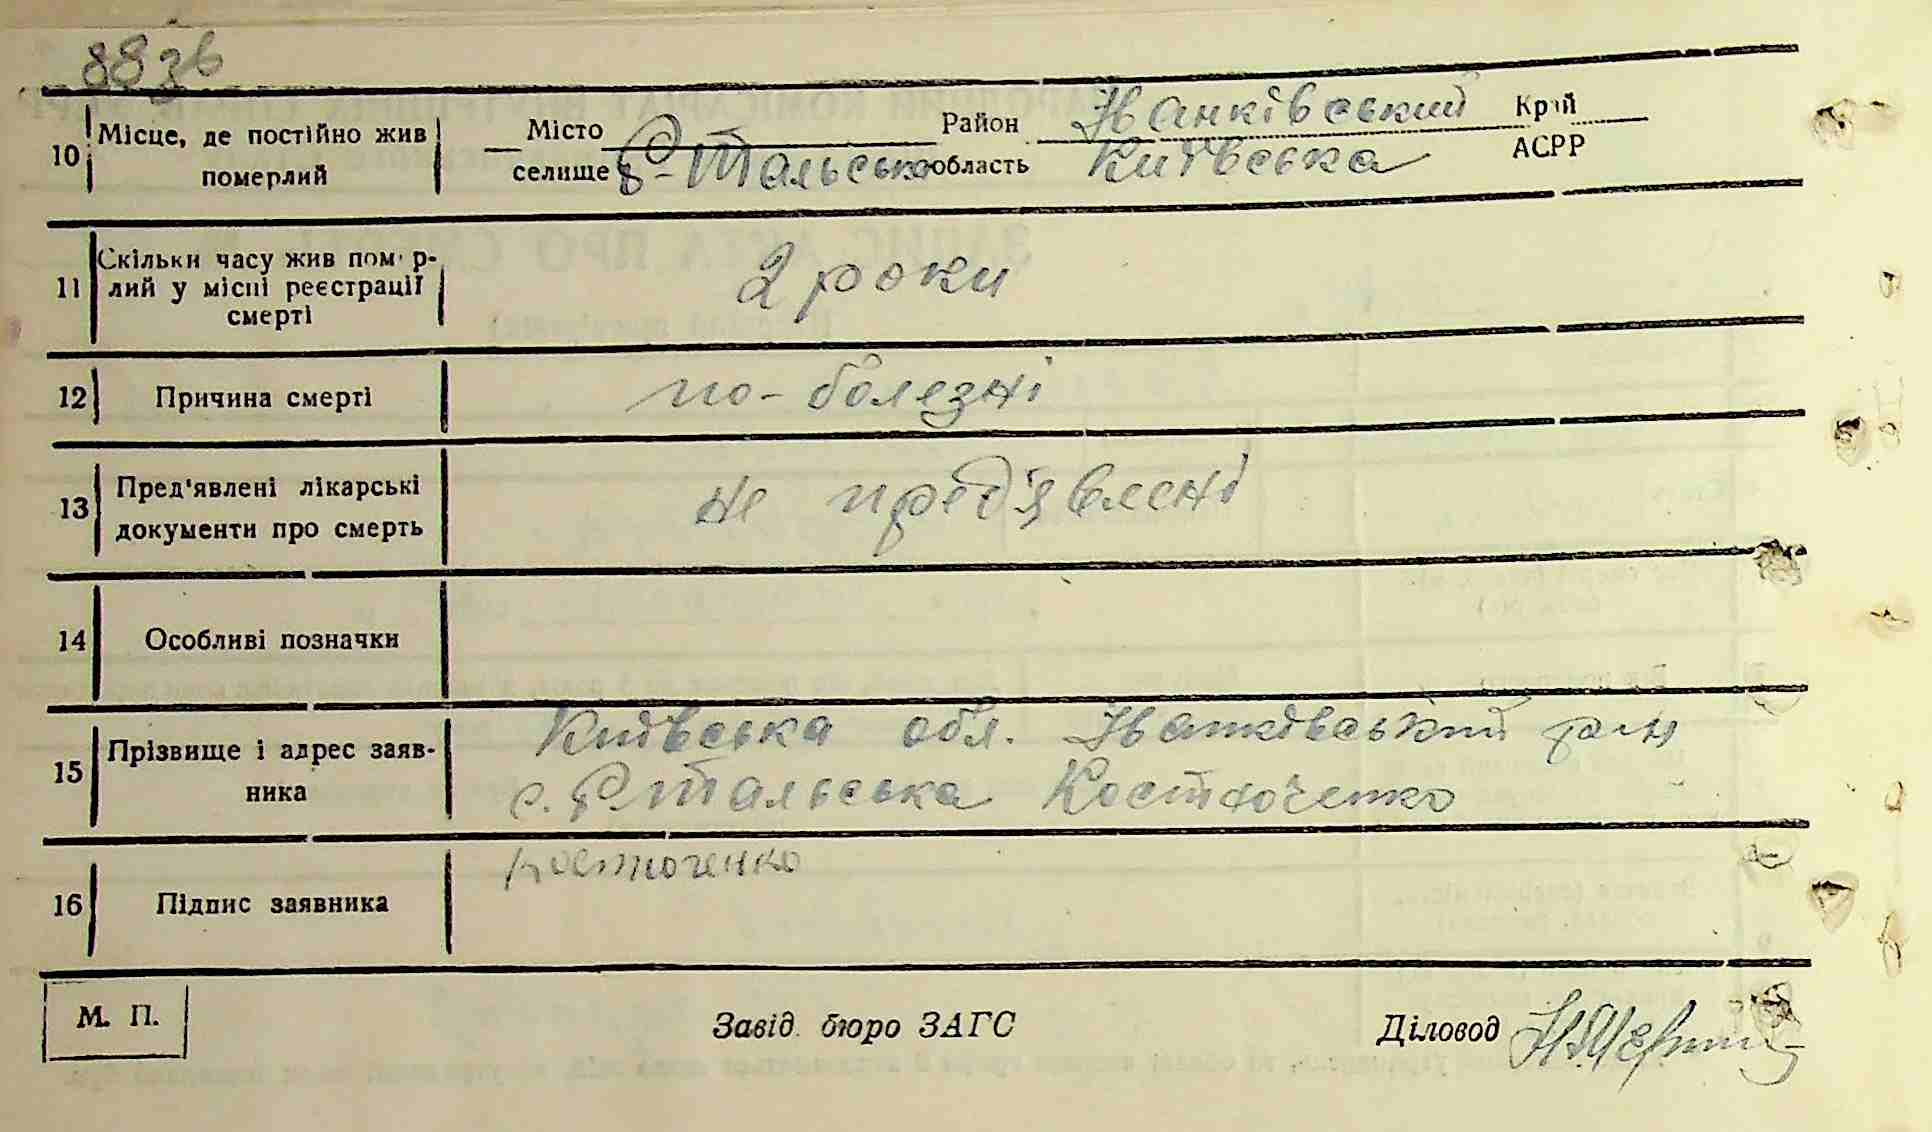 88зв
10 Місце, де постійно жив померлий Місто селище Р-Тальська Район Іванківський область Київська Край АСРР
11 Скільки часу жив помер-
лий у місці реєстрації
смерті 2 роки
12 Причина смерті по-болезні
13 Пред'явлені лікарські
документи про смерть не пред'явлені
14 Особливі позначки
15 Прізвище і адрес заяв-
ника Київська обл. Іванківський р-н
с. Р Тальська Костюченко
16 Підпис заявника Костюченко
М. П. Завід. бюро ЗАГС Діловод